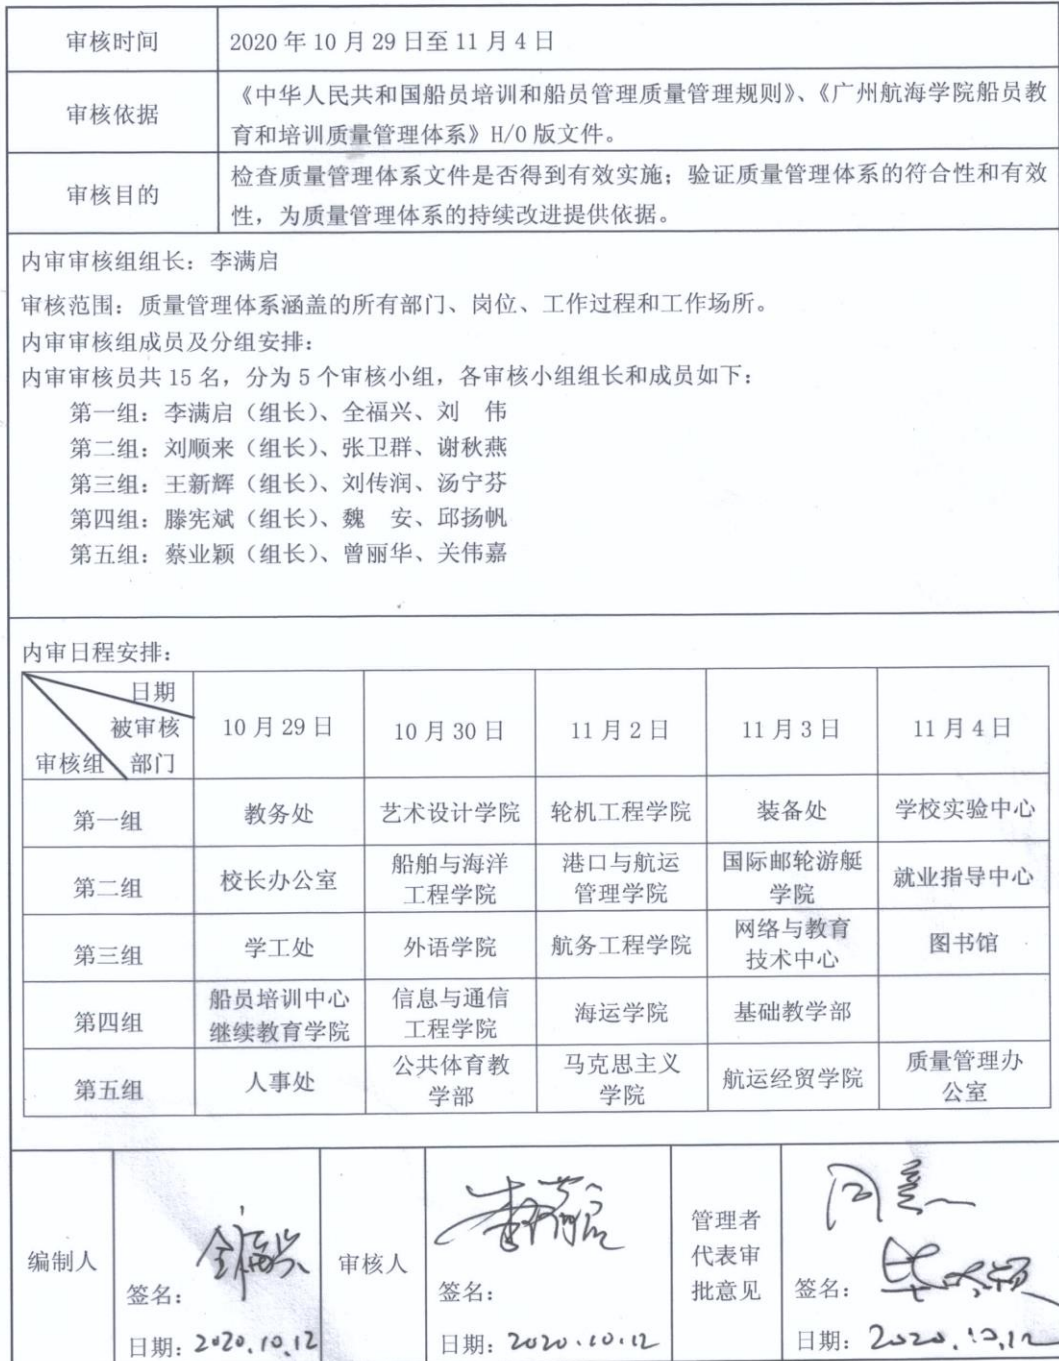 审核时间
2020 年 10 月 29 日至 11 月 4 日
审核依据
《中华人民共和国船员培训和船员管理质量管理规则》、《广州航海学院船员教
育和培训质量管理体系》H/0 版文件。
审核目的
检查质量管理体系文件是否得到有效实施；验证质量管理体系的符合性和有效
性，为质量管理体系的持续改进提供依据。
内审审核组组长：李满启
审核范围：质量管理体系涵盖的所有部门、岗位、工作过程和工作场所。
内审审核组成员及分组安排：
内审审核员共 15 名，分为 5 个审核小组，各审核小组组长和成员如下：
第一组：李满启（组长）、全福兴、刘　伟
第二组：刘顺来（组长）、张卫群、谢秋燕
第三组：王新辉（组长）、刘传润、汤宁芬
第四组：滕宪斌（组长）、魏　安、邱扬帆
第五组：蔡业颖（组长）、曾丽华、关伟嘉
内审日程安排：
日期
被审核
审核组 部门
10 月 29 日
10 月 30 日
11 月 2 日
11 月 3 日
11 月 4 日
第一组
教务处
艺术设计学院
轮机工程学院
装备处
学校实验中心
第二组
校长办公室
船舶与海洋
工程学院
港口与航运
管理学院
国际邮轮游艇
学院
就业指导中心
第三组
学工处
外语学院
航务工程学院
网络与教育
技术中心
图书馆
第四组
船员培训中心
继续教育学院
信息与通信
工程学院
海运学院
基础教学部
第五组
人事处
公共体育教
学部
马克思主义
学院
航运经贸学院
质量管理办
公室
编制人
签名：全福兴
日期：2020.10.12
审核人
李满启
签名：
日期：2020.10.12
管理者
代表审
批意见
同意
签名：
日期：2020.10.12